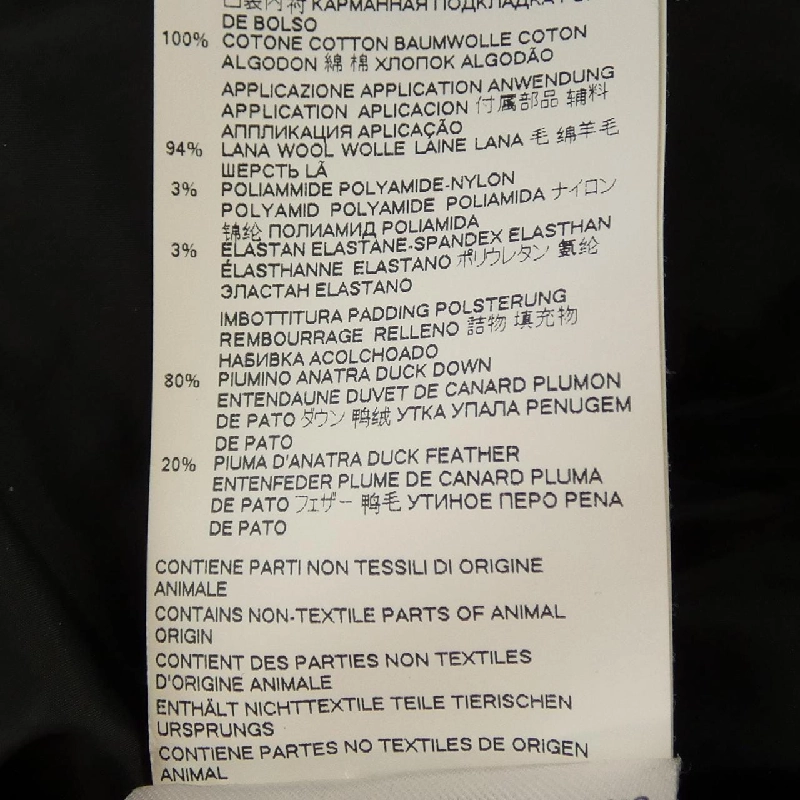 口袋内衬 КАРМАННАЯ ПОДКЛАДКА
DE BOLSO
100% COTONE COTTON BAUMWOLLE COTON
ALGODON 綿 棉 ХЛОПОК ALGODÃO
APPLICAZIONE APPLICATION ANWENDUNG
APPLICATION APLICACION 付属部品 辅料
АППЛИКАЦИЯ APLICAÇÃO
94% LANA WOOL WOLLE LAINE LANA 毛 绵羊毛
ШЕРСТЬ LÃ
3% POLIAMMIDE POLYAMIDE-NYLON
POLYAMID POLYAMIDE POLIAMIDA ナイロン
锦纶 ПОЛИАМИД POLIAMIDA
3% ELASTAN ELASTANE-SPANDEX ELASTHAN
ÉLASTHANNE ELASTANO ポリウレタン 氨纶
ЭЛАСТАН ELASTANO
IMBOTTITURA PADDING POLSTERUNG
REMBOURRAGE RELLENO 詰物 填充物
НАБИВКА ACOLCHOADO
80% PIUMINO ANATRA DUCK DOWN
ENTENDAUNE DUVET DE CANARD PLUMON
DE PATO ダウン 鸭绒 УТКА УПАЛА PENUGEM
DE PATO
20% PIUMA D'ANATRA DUCK FEATHER
ENTENFEDER PLUME DE CANARD PLUMA
DE PATO フェザー 鸭毛 УТИНОЕ ПЕРО PENA
DE PATO
CONTIENE PARTI NON TESSILI DI ORIGINE
ANIMALE
CONTAINS NON-TEXTILE PARTS OF ANIMAL
ORIGIN
CONTIENT DES PARTIES NON TEXTILES
D'ORIGINE ANIMALE
ENTHÄLT NICHTTEXTILE TEILE TIERISCHEN
URSPRUNGS
CONTIENE PARTES NO TEXTILES DE ORIGEN
ANIMAL